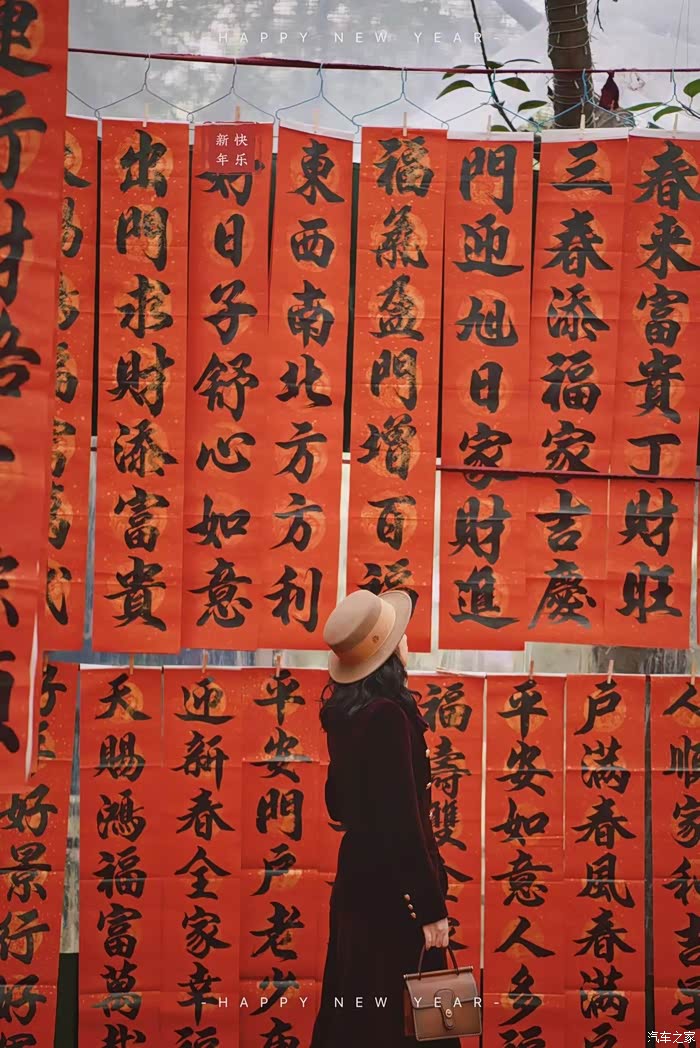 -HAPPY NEW YEAR-
新年
快乐
春来富贵丁財旺
三春添福家吉慶
門迎旭日家財進
福氣盈門增百福
東西南北方方利
日子舒心如意
出門求財添富貴
行財
人順家和吉星
戶滿春風春滿戶
平安如意人多福
福壽雙全
平安門戶老少
迎新春全家幸福
天賜鴻福富萬
好景行好
-HAPPY NEW YEAR-
汽车之家